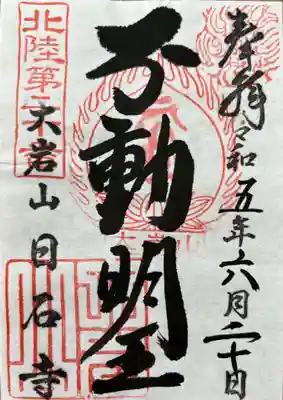 奉拝 令和五年六月二十日
不動明王
北陸第一
大岩山日石寺
大岩山